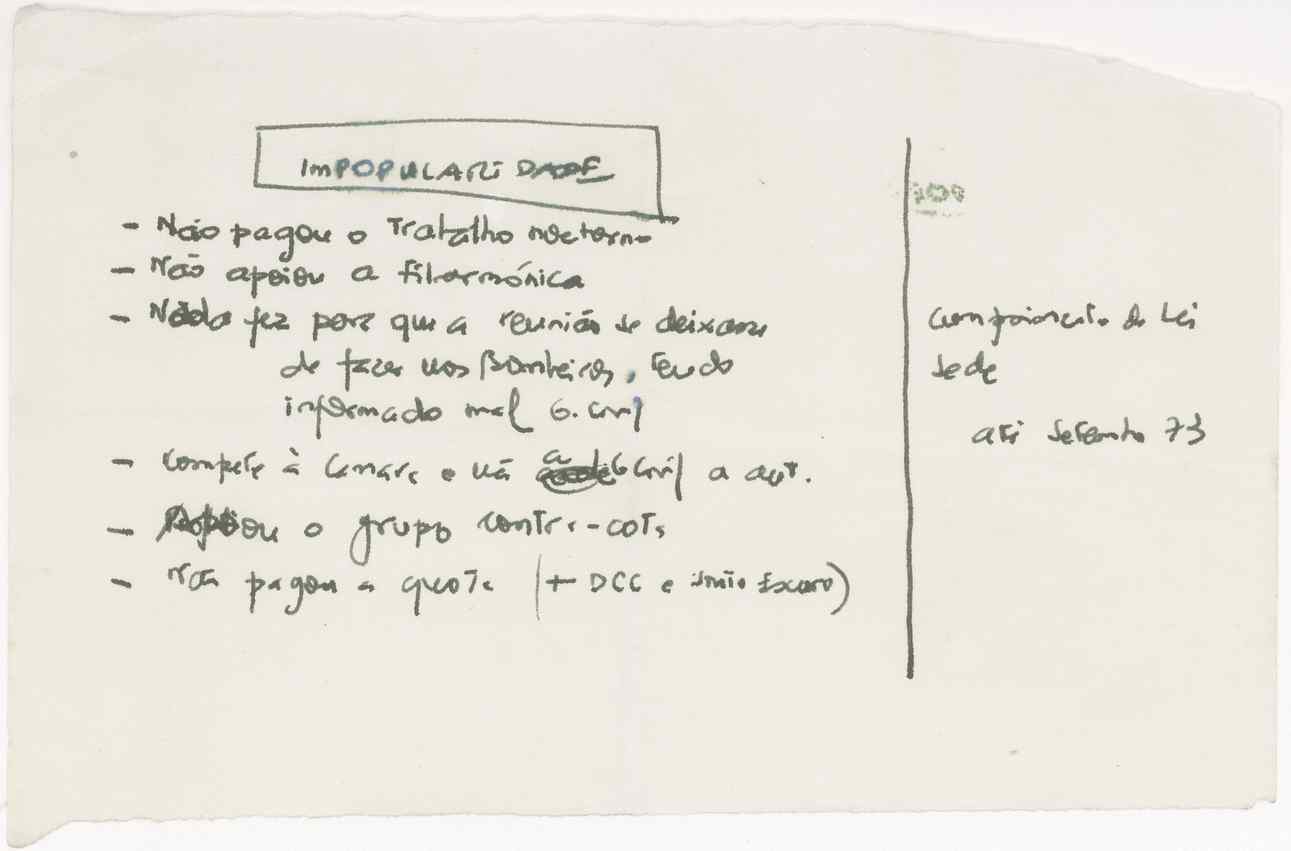 IMPOPULARIDADE
- Não pagou o Trabalho nocturno
- Não apoiou a filarmónica
- Nada fez para que a reunião se deixasse
de fazer nos Bombeiros, tendo
informado mal G. Civil
- Compete à Camara e não a G Civil a aut.
- Apoiou o grupo contra-cota
- Não pagou a quota (+ DCC e
cumprimento da Lei
sede
até Setembro 73